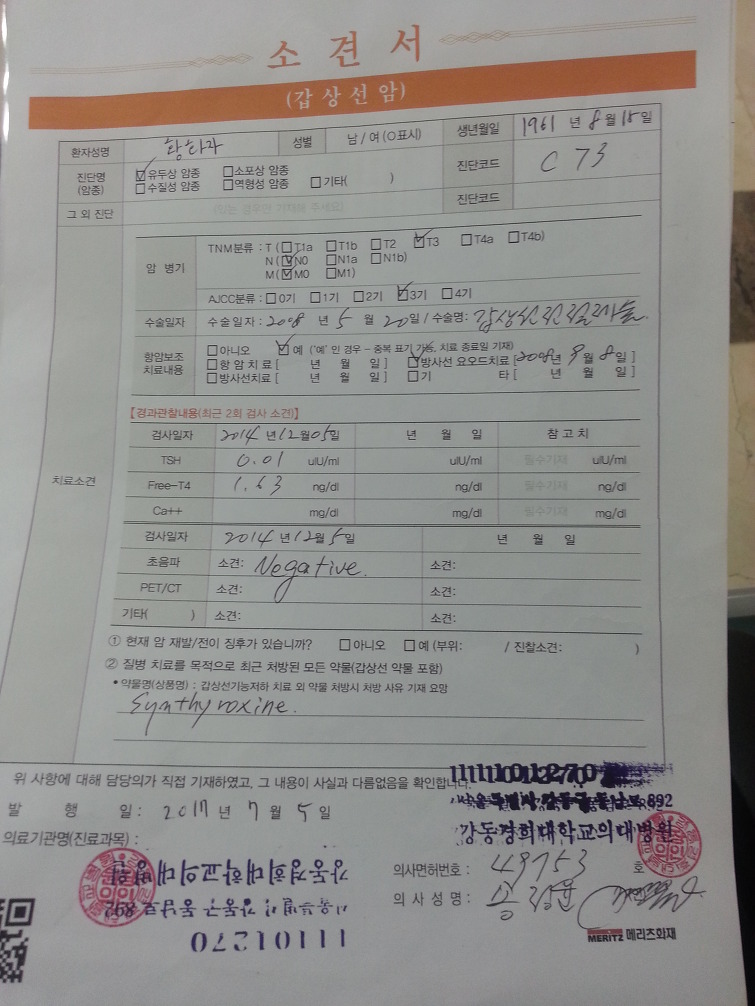 소견서
(갑상선암)
환자성명 성별 남 / 여 (O표시) 생년월일 1961 년 8 월 15 일
진단명 (암종) ☑유두상 암종 □소포상 암종 진단코드 C 73
□수질성 암종 □역형성 암종 □기타( )
그 외 진단 진단코드
암 병기 TNM분류 : T (□T1a □T1b □T2 ☑T3 □T4a □T4b)
N (☑N0 □N1a □N1b)
M (☑M0 □M1)
AJCC분류 : □0기 □1기 □2기 ☑3기 □4기
수술일자 수술일자 : 2008 년 5 월 20일 / 수술명:
항암보조 치료내용 □아니오 ☑예 ('예' 인 경우 - 중복 표기 가능, 치료 종료일 기재)
□항암치료 [ 년 월 일 ] ☑방사선 요오드치료 [2008년 9월 8일 ]
□방사선치료 [ 년 월 일 ] □기 타 [ 년 월 일 ]
치료소견
【경과관찰내용(최근 2회 검사 소견)】
검사일자 2014 년 12월 05일 년 월 일 참 고 치
TSH 0.01 uIU/ml uIU/ml 필수기재 uIU/ml
Free-T4 1.63 ng/dl ng/dl 필수기재 ng/dl
Ca++ mg/dl mg/dl 필수기재 mg/dl
검사일자 2014 년 12월 5일 년 월 일
초음파 소견: Negative. 소견:
PET/CT 소견: 소견:
기타( ) 소견: 소견:
① 현재 암 재발/전이 징후가 있습니까? □아니오 □예 (부위: / 진찰소견: )
② 질병 치료를 목적으로 최근 처방된 모든 약물(갑상선 약물 포함)
• 약물명(상품명) : 갑상선기능저하 치료 외 약물 처방시 처방 사유 기재 요망
Synthyroxine.
위 사항에 대해 담당의가 직접 기재하였고, 그 내용이 사실과 다름없음을 확인합니다.
11101270
발 행 일 : 2017 년 7 월 5 일
서울특별시 강동구 동남로 892
의료기관명(진료과목) :
강동경희대학교의대병원
의사면허번호 : 49753 호
의 사 성 명 :
강동경희대학교의대병원
서울특별시 강동구 동남로 892
11101270
MERITZ 메리츠화재